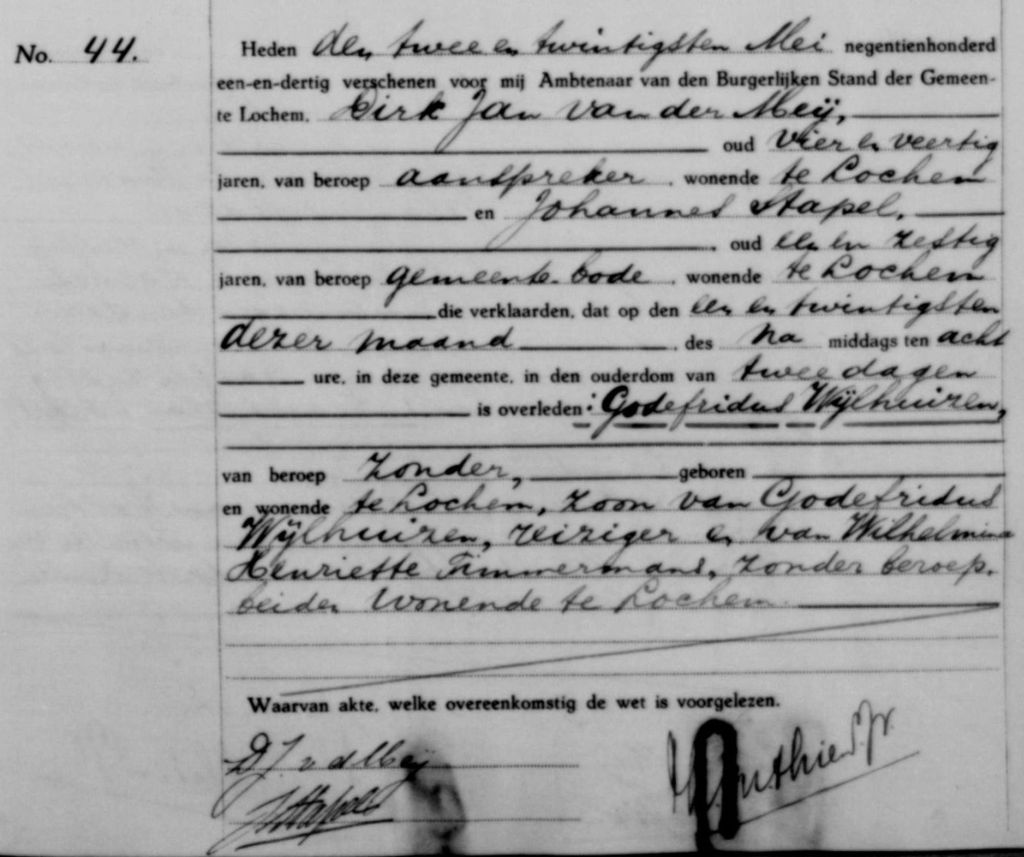 No. 44.
Heden den twee en twintigsten Mei negentienhonderd
een-en-dertig verschenen voor mij Ambtenaar van den Burgerlijken Stand der Gemeen-
te Lochem, Dirk Jan van der Meij,
oud vier en veertig
jaren, van beroep aanspreker, wonende te Lochem
en Johannes Stapel,
, oud een en zestig
jaren, van beroep gemeente-bode, wonende te Lochem
die verklaarden, dat op den een en twintigsten
dezer maand, des na middags ten acht
ure, in deze gemeente, in den ouderdom van twee dagen
is overleden: Godefridus Wijlhuizen,
van beroep zonder, geboren
en wonende te Lochem, zoon van Godefridus
Wijlhuizen, reiziger en van Wilhelmina
Henriette Timmermans, zonder beroep,
beiden wonende te Lochem.
Waarvan akte, welke overeenkomstig de wet is voorgelezen.
D J. v d Meij
Stapel